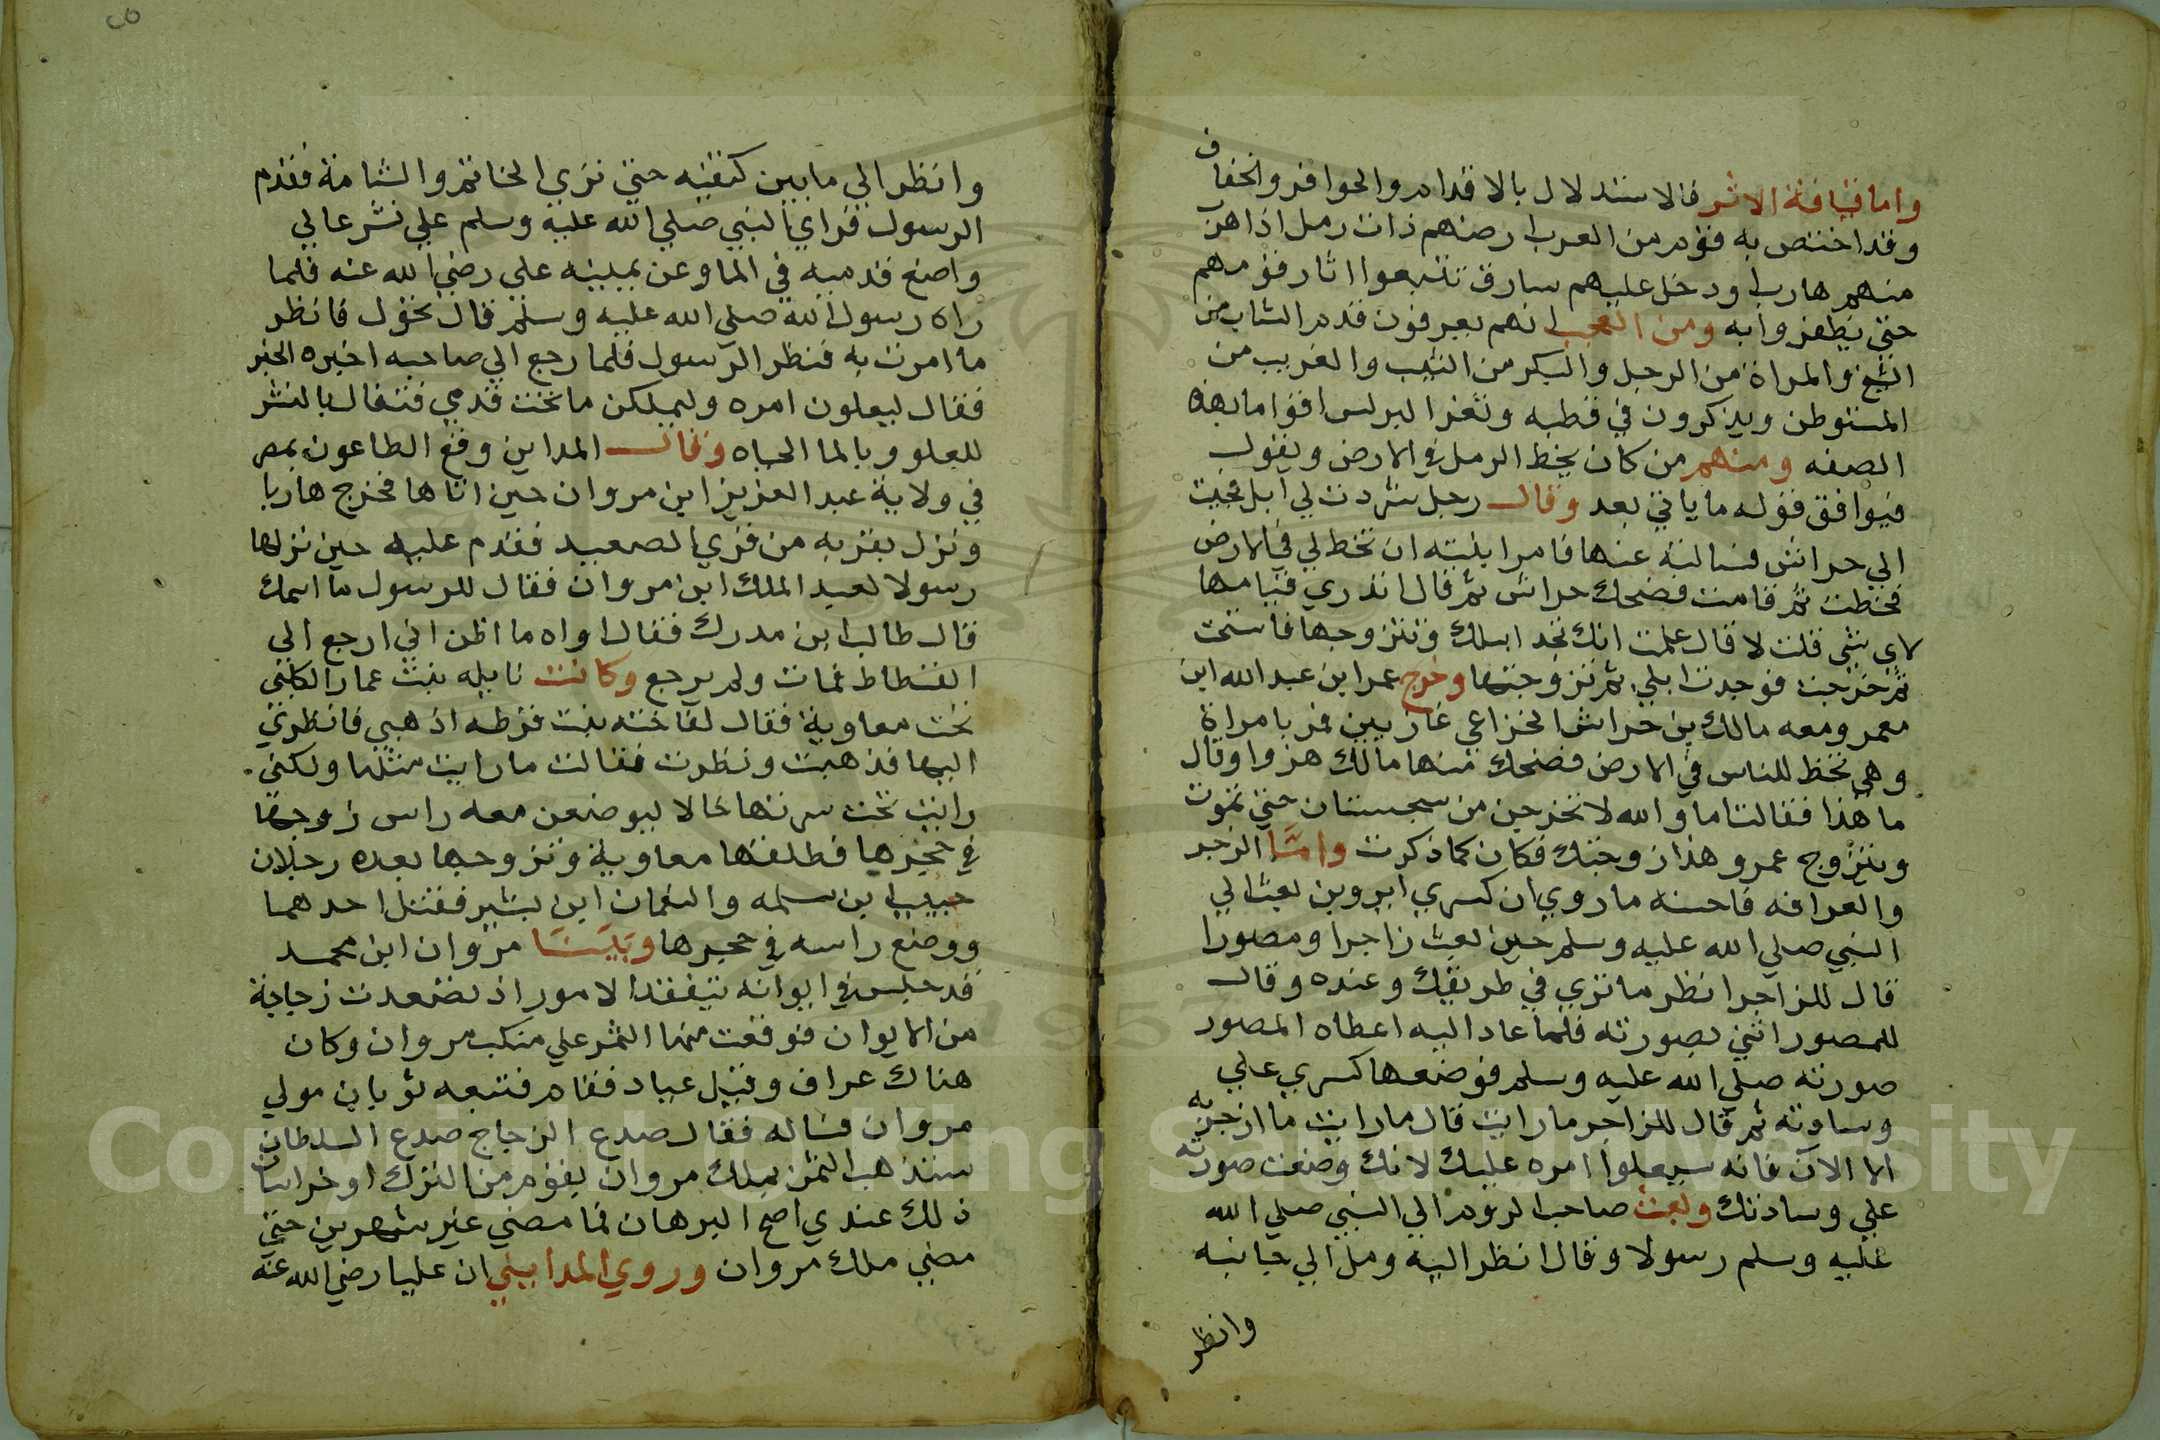 واما قيافة الاثر فالاستدلال بالاقدام والحوافر والخفاف
وقد اختص به قوم من العرب ارضهم ذات رمل اذا هرب
منهم هارب او دخل عليهم سارق تتبعوا اثار قومهم
حتي يظفروا به ومن العجب انهم يعرفون قدم الشاب من
الشيخ والمراة من الرجل والبكر من الثيب والغريب من
المستوطن ويذكرون في قطيه وثغر البرلس اقواما بهذه
الصفه ومنهم من كان يخط الرمل في الارض ويقول
فيوافق قوله ما ياتي بعد وقال رجل شردت لي ابل فجيت
الي حراش فسالته عنها فامر ابنته ان تخط لي في الارض
فخطت ثم قامت فضحك حراش ثم قال اتدري قيامها
لاي شي قلت لا قال علمت انك تجد ابلك وتتزوجها فاستحت
ثم خرجت فوجدت ابلي ثم تزوجتها وخرج عمر ابن عبد الله ابن
معمر ومعه مالك بن حراش الخزاعي غازيين فمر بامراة
وهي تخط للناس في الارض فضحك منها مالك هزوا وقال
ما هذا فقالت اما والله لا تخرجن من سجستان حتي تموت
ويتزوج عمرو هذا زوجتك فكان كما ذكرت وامّا الزجر
والعرافه فاحسنه ما روي ان كسري ابرويز بعث الي
النبي صلي الله عليه وسلم حين بعث زاجرا ومصورا
قال للزاجر انظر ما تري في طريقك وعنده وقال
للمصور اثني بصورته فلما عاد اليه اعطاه المصور
صورته صلي الله عليه وسلم فوضعها كسري علي
وسادته ثم قال للزاجر ما رايت قال ما رايت ما ازجر به
الا الان فانه سيعلوا امره عليك لانك وضعت صورته
علي وسادتك وبعث صاحب الروم الي النبي صلي الله
عليه وسلم رسولا وقال انظر اليه ومل الي جانبه
وانظر
وانظر الي ما بين كتفيه حتي تري الخاتم والشامة فقدم
الرسول فراي النبي صلي الله عليه وسلم علي نشز عالي
واضع قدميه في الما وعن يمينه علي رضي الله عنه فلما
راه رسول الله صلي الله عليه وسلم قال تحول فانظر
ما امرت به فنظر الرسول فلما رجع الي صاحبه اخبره الخبر
فقال ليعلون امره وليملكن ما تحت قدمي فتفال بالنشز
للعلو وبالما الحياه وقال المداين وقع الطاعون بمصر
في ولاية عبد العزيز ابن مروان حين اتاها فخرج هاربا
ونزل بقريه من قري الصعيد فقدم عليه حين نزلها
رسولا لعبد الملك ابن مروان فقال للرسول ما اسمك
قال طالب ابن مدرك فقال اواه ما اظن اني ارجع الي
الفسطاط فمات ولم يرجع وكانت نايله بنت عمار الكلبي
تحت معاوية فقال لفاخته بنت قرطه اذهبي فانظري
اليها فذهبت ونظرت فقالت ما رايت مثلها ولكني
رايت تحت سرتها خالا ليوضعن معه راس زوجها
في حجرها فطلقها معاوية وتزوجها بعده رجلان
حبيب بن سلمه والنعمان ابن بشير فقتل احدهما
ووضع راسه في حجرها وبَيْنَا مروان ابن محمد
قد جلس في ايوانه يتفقد الامور اذ تصعدت زجاجة
من الايوان فوقعت منها الشمس علي منكب مروان وكان
هناك عراف وقيل عياد فقام فتبعه ثوبان مولي
مروان فساله فقال صدع الزجاج صدع السلطان
ستذهب الشمس بملك مروان بقوم من الترك او خراسان
ذلك عندي اصح البرهان فما مضي غير شهرين حتي
مضي ملك مروان وروي المدايني ان عليا رضي الله عنه
Copyright © King Saud University